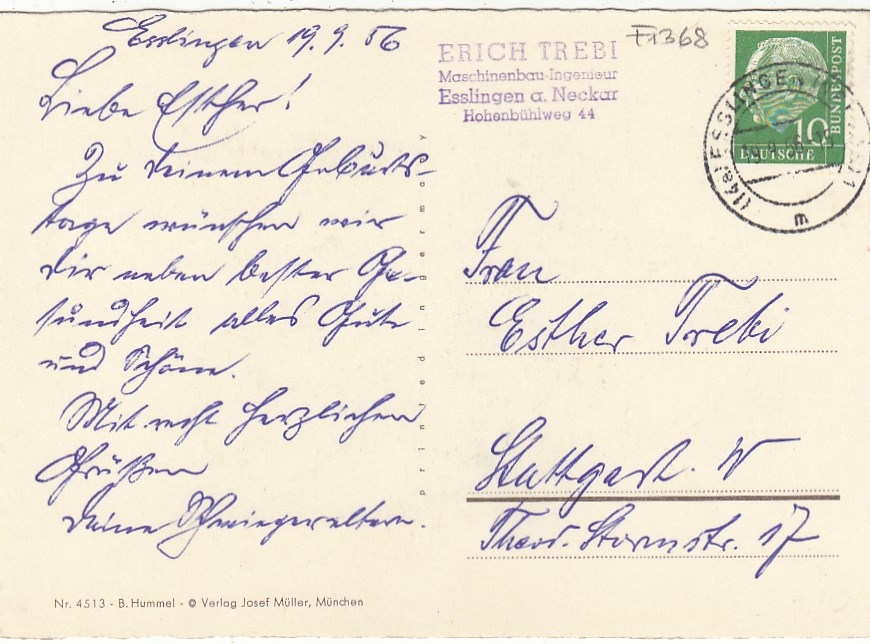 Esslingen 19.9.56
Liebe Esther!
Zu Deinem Geburts-
tage wünschen wir
Dir neben bester Ge-
sundheit alles Gute
und Schöne.
Mit recht herzlichen
Grüßen
Deine Schwiegereltern.
Nr. 4513 - B. Hummel - © Verlag Josef Müller, München
printed in germany
ERICH TREBI
Maschinenbau-Ingenieur
Esslingen a. Neckar
Hohenbühlweg 44
F1368
DEUTSCHE
BUNDESPOST
10
(14a) ESSLINGEN
19.9.56
m
Frau
Esther Trebi
Stuttgart. W
Theod. Stormstr. 17